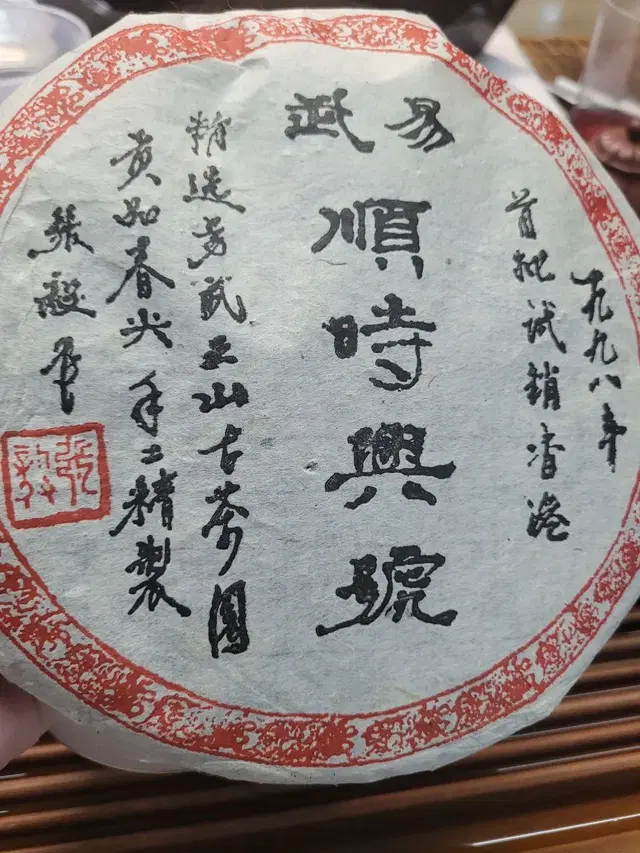 一九九八年
首批试销香港
易武
順時興號
精选易武正山古茶園
贡品春尖手工精製
張毅
張毅